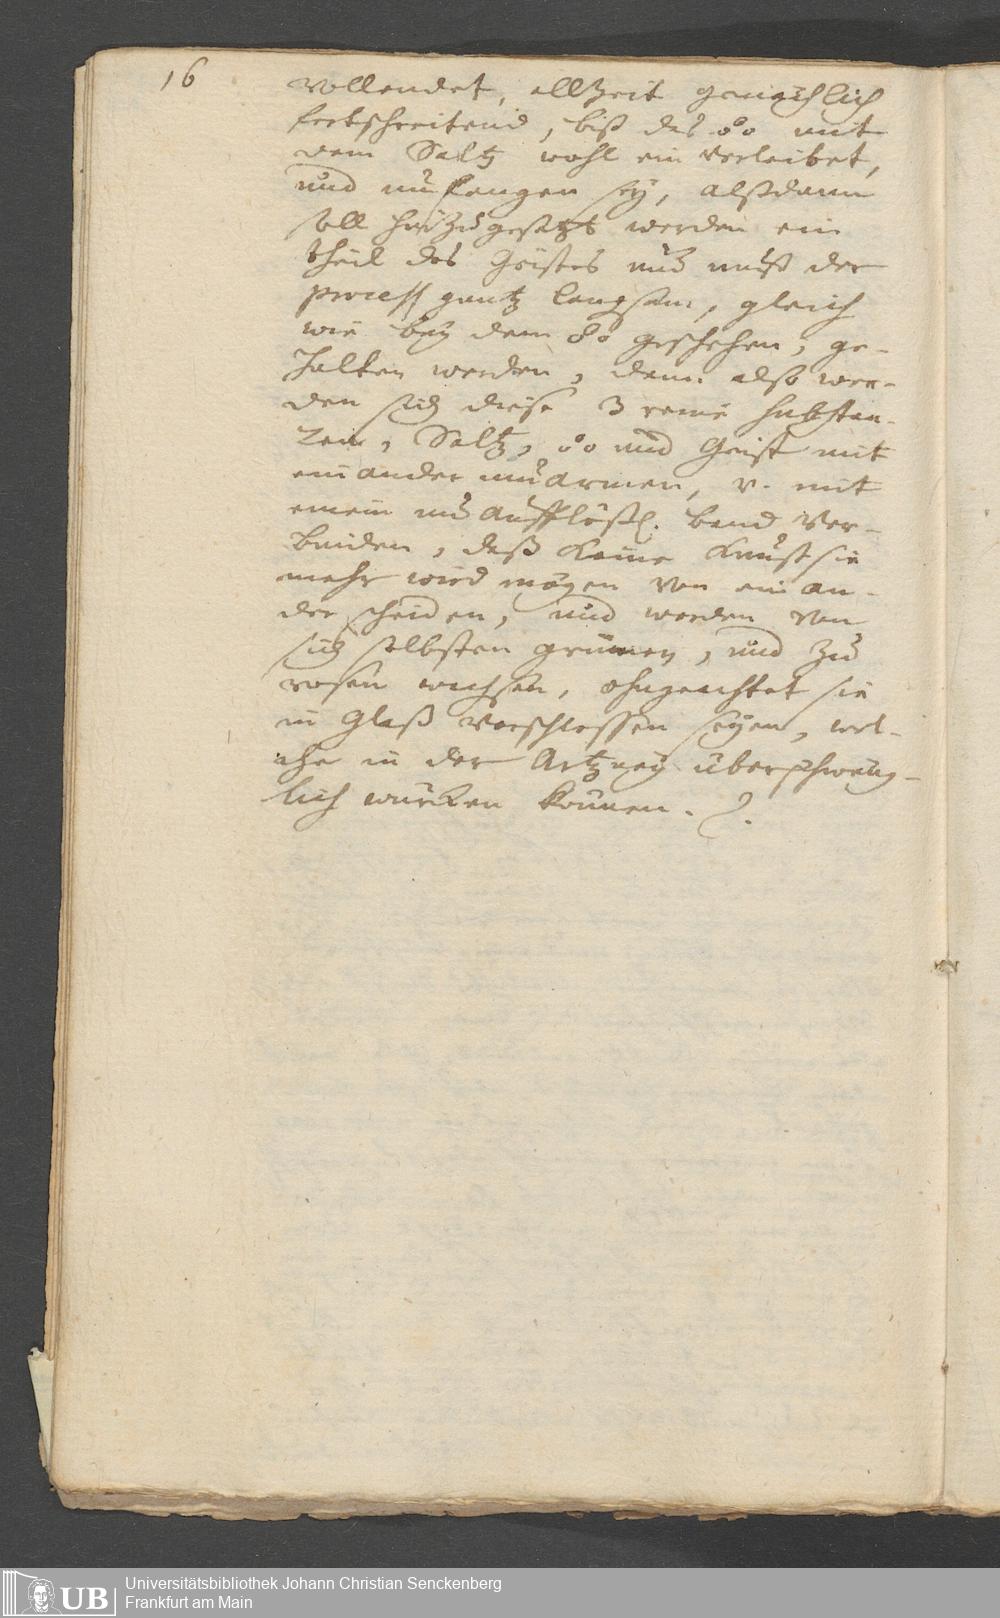 16
vollendet, allzeit gemächlich
fortschreitend, biß das o°o mit
dem Saltz wohl ein verleibet,
und umfangen sey, alßdann
soll hinzu gesetzt werden ein
theil des Geistes und muß der
process gantz langsam, gleich
wie bey dem o°o geschehen, ge-
halten werden, dann also wer-
den sich diese 3 reine substan-
zen, Saltz, o°o und Geist mit
ein ander umarmen, v. mit
einem unauflößl. band ver-
binden, daß keine Kunst sie
mehr wird mögen von ein an-
der scheiden, und werden von
sich selbsten grünen, und zu
rosen wachsen, ohngeachtet sie
in Glaß verschlossen seyen, wel-
che in der Artzney überschweng-
lich würken können.
Universitätsbibliothek Johann Christian Senckenberg
Frankfurt am Main
UB